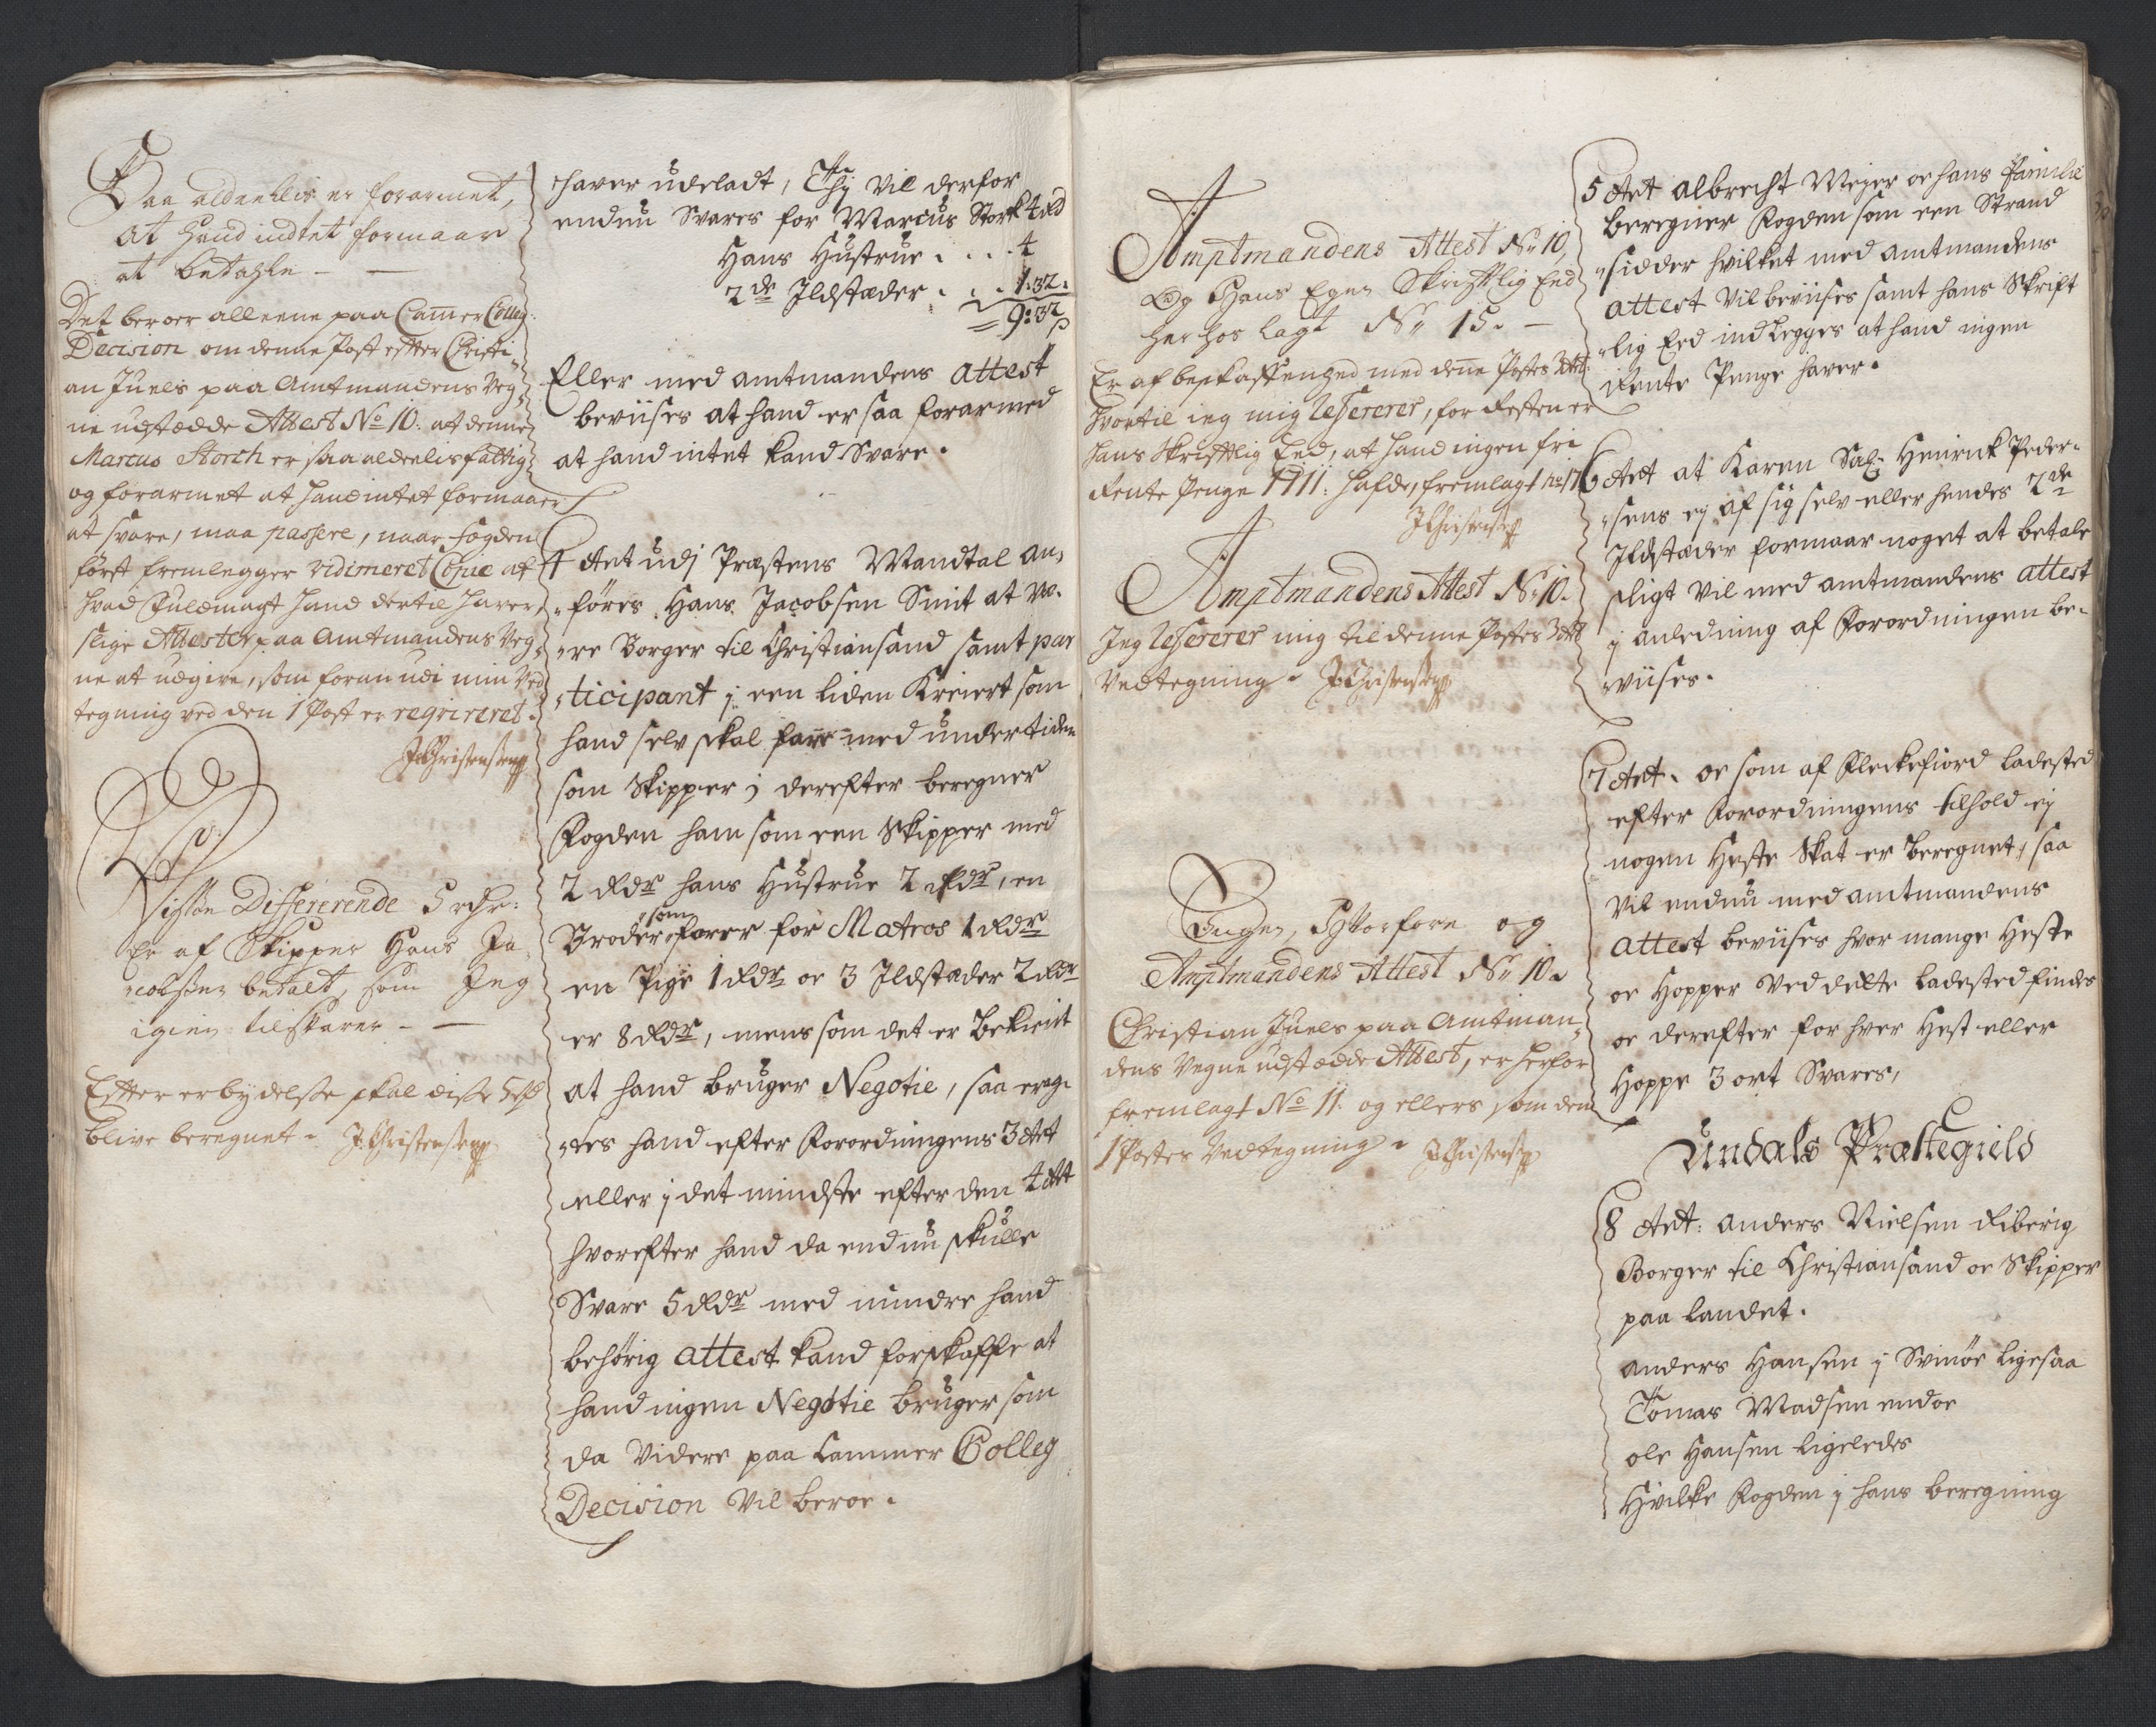 Saa aldeelis er forarmet,
at hand indtet formaar
at betahle —
Det beroer alleene paa Cammer Colleg:
Decision om denne Post efter Christi-
an Juels paa Amtmandens Veg-
ne udstædde Attest No 10. at denne
Marcus Storch er saa aldeelis fattig
og forarmet at hand intet formaaer
at svare, maa passere, naar fogden
først fremlegger vidimeret Copie af
hvad Fuldmagt hand dertil haver,
slige Attester paa Amtmandens Veg-
ne at udgive, som foran udi min Ved
tegning ved den 1 Post er reqvireret.
J Christensen
Disse Differerende 5 rdr:
Er af Skipper Hans Ja-
cobsen betalt, som Jeg
igien tilsvarer —
Efter erbydelse skal disse 5 rd
blive beregnet. J Christensen
haver udeladt, Thj vil derfor
endnu Svares for Marcus Stork 4 Rd
Hans Hustrue . . . 4
2de Ildstæder . . . 1:32.
= 9:32 s
Eller med amtmandens attest
beviises at hand er saa forarmed
at hand intet kand Svare.
4 Art udj Præstens Mandtal an-
føres Hans Jacobsen Smit at væ-
re Borger til Christiansand samt par
ticipant j een liden Kreiert som
hand selv skal fare med undertiden
som Skipper; derefter beregner
Fogden ham som een Skipper med
2 Rdr hans Hustrue 2 Rdr, en
Broder som farer for Matros 1 Rdr
en Pige 1 Rdr oc 3 Ildstæder 2 Rdr
er 8 Rdr, mens som det er bekient
at hand bruger Negotie, saa ereg-
nes hand efter Forordningens 3 Art
eller j det mindste efter den 4 Art
hvorefter hand da endnu skulle
Svare 5 Rdr med mindre hand
behørig attest kand forskaffe at
hand ingen Negotie bruger som
da videre paa Cammer Colleg
Decision vil beroe.
Amptmandens Attest No 10,
Og Hans Egen Skriftlig Eed
her hos lagt No 15. —
Er af beskaffenhed med denne Postes 3 Art:
hvortil ieg mig refererer, for Resten er
hans skriftlig Eed, at hand ingen fri
Rente Penge 1711. hafde, fremlagt No 17
J Christensen
Amptmandens Attest No 10.
Jeg refererer mig til denne Postes 3 Art
Vedtegning. J Christensen
Ingen, Hvorfore og
Amptmandens Attest No 10.
Christian Juels paa Amtman-
dens Vegne udstædde Attest, er herfor
fremlagt No 11. og ellers som den
1 Postes Vedtegning. J Christensen
5 Art Albrecht Meyer oc hans Familie
beregner Fogden som een Strand
sidder hvilket med amtmandens
attest vil beviises samt hans Skrift
lig Eed indlegges at hand ingen
Rente Penge haver.
6 Art at Karen Sal: Henrick Peder-
sens ej af sig selv eller hendes 2de
Ildstæder formaar noget at betale
sligt vil med amtmandens attest
j anledning af Forordningen be-
viises.
7 Art. oc som af Fleckefiord ladested
efter Forordningens tilhold ej
nogen Heste Skat er beregnet, saa
vil endnu med amtmandens
attest beviises hvor mange Heste
oc Hopper ved dette ladested findes
oc derefter for hver Hest eller
Hoppe 3 ort Svares,
Undals Præstegield
8 Art: Anders Nielsen Riberig
Borger til Christiansand oc Skipper
paa landet.
Anders Hansen j Svinøe ligesaa
Tomas Madsen endoc
ole Hansen ligeledes
Hvilke Fogden j hans beregning